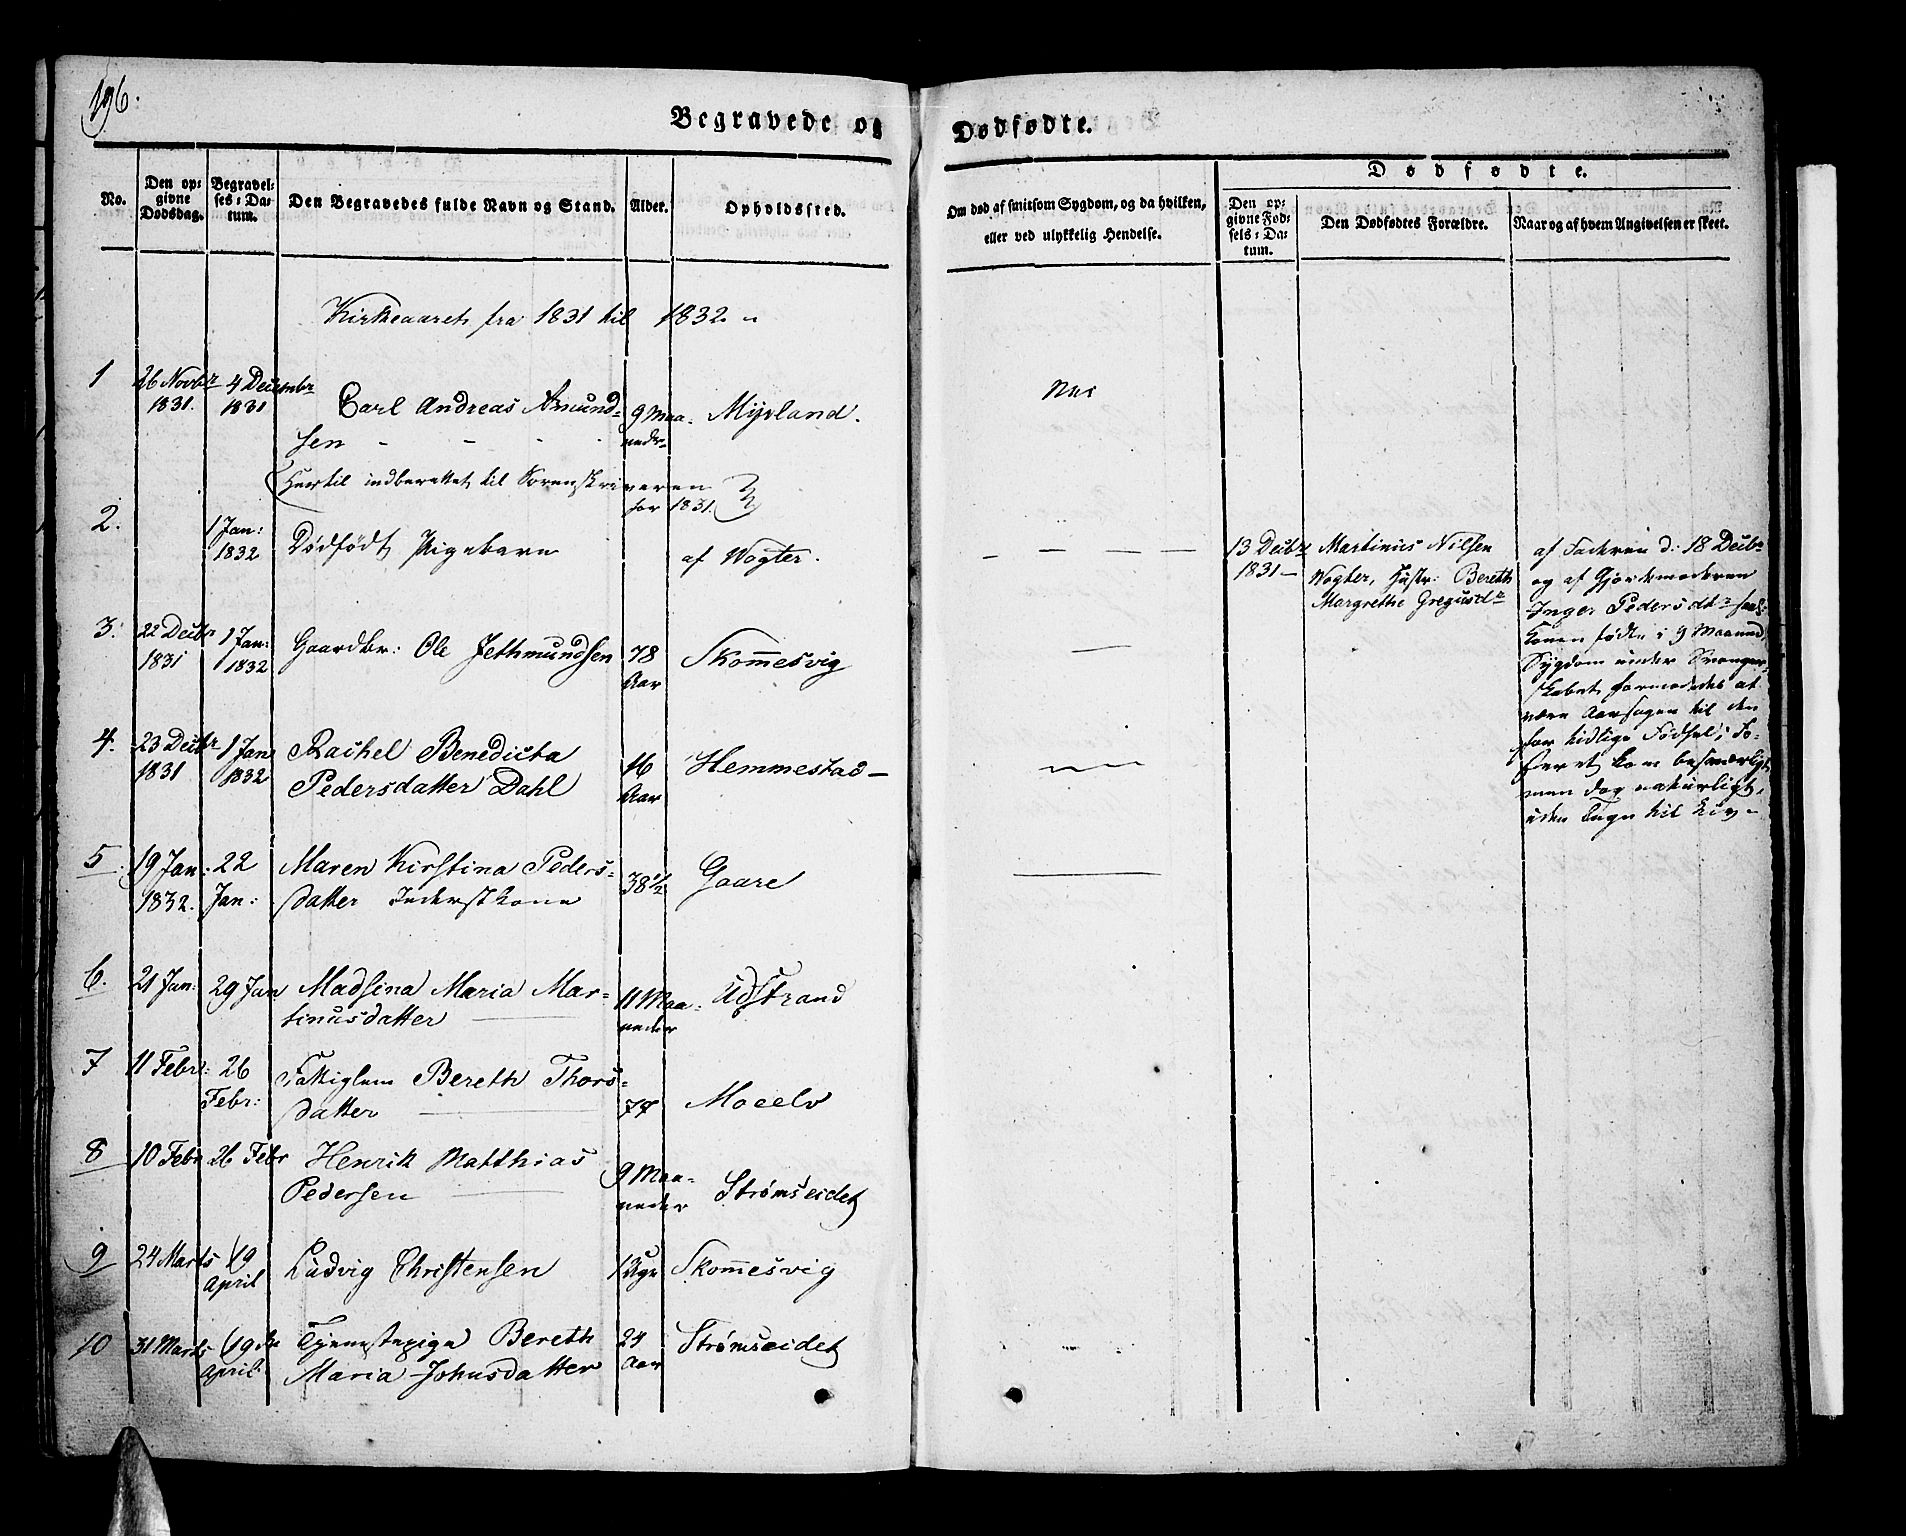 196.
Begravede og Dødfødte.
No.
Den op-
givne
Dødsdag.
Begravel-
ses-Da-
tum.
Den Begravedes fulde Navn og Stand.
Alder.
Opholdssted.
Om død af smitsom Sygdom, og da hvilken,
eller ved ulykkelig Hendelse.
Dødfødte.
Den op-
givne Fød-
sels-Da-
tum.
Den Dødfødtes Forældre.
Naar og af hvem Angivelsen er skeet.
Kirkeaaret fra 1831 til 1832
1
26 Novbr
1831.
4 Decembr
1831
Carl Andreas Amund-
sen
9 Maa-
neder
Myvland.
Nei
(Hertil indberettet til Sorenskriveren
for 1831.)
2.
1 Jan:
1832
Dødfødt Pigebarn
af Wogter.
13 Decbr
1831
Martinus Nilsen
Wogter, Hustr: Bereth
Margrethe Gregusdr
af Faderen d: 18 Decbr
og af Gjordemoderen
Inger Pedersdtr
Konen fødte i 9 Maaned
Sygdom under Svanger-
skabet formodedes at
være Aarsagen til den
for tidlige Fødsel; Fo-
steret kom besværligt
men dog naturligt,
uden Tegn til Liv
3.
22 Decbr
1831
1 Jan:
1832
Gaardbr: Ole Jethmundsen
78
Aar
Skommesvig
4.
23 Decbr
1831
1 Jan
1832
Rachel Benedicta
Pedersdatter Dahl
16
Aar
Hemmestad
5
19 Jan:
1832.
22
Jan:
Maren Kirstina Peders-
datter Inderstkone
38 1/2
Gaare
6.
21 Jan:
29 Jan
Madsina Maria Mar-
tinusdatter
11 Maa-
neder
Udstrand
7
11 Febr:
26
Febr:
Fattiglem Bereth Thors-
datter
77
Moeelv
8
10 Febr
26 Febr
Henrik Matthias
Pedersen
9 Maa-
neder
Strømseidet
9
24 Marts
19
April
Ludvig Christensen
1 Uge
Skommesvig
10
31 Marts
19de
April
Tjenestepige Bereth
Maria Johnsdatter
24
Aar
Strømseidet